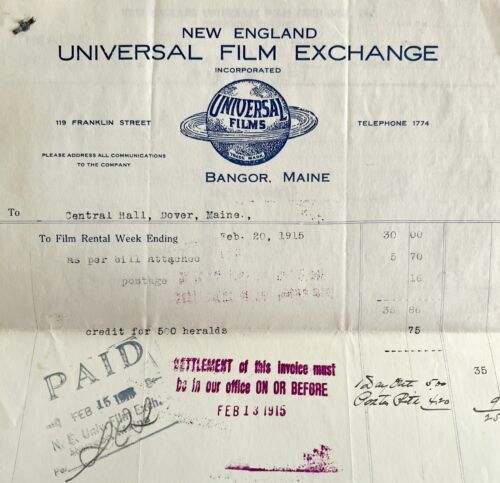 NEW ENGLAND
UNIVERSAL FILM EXCHANGE
INCORPORATED
UNIVERSAL
FILMS
TRADE MARK
119 FRANKLIN STREET
TELEPHONE 1774
PLEASE ADDRESS ALL COMMUNICATIONS
TO THE COMPANY
BANGOR, MAINE
To Central Hall, Dover, Maine.,
To Film Rental Week Ending Feb. 20, 1915 30 00
as per bill attached 5 70
postage 16
35 86
credit for 500 heralds 75
35
PAID
FEB 15 1915
N. E. Univ. Film Exch.
SETTLEMENT of this invoice must
be in our office ON OR BEFORE
FEB 13 1915
5.00
4.20 9
25